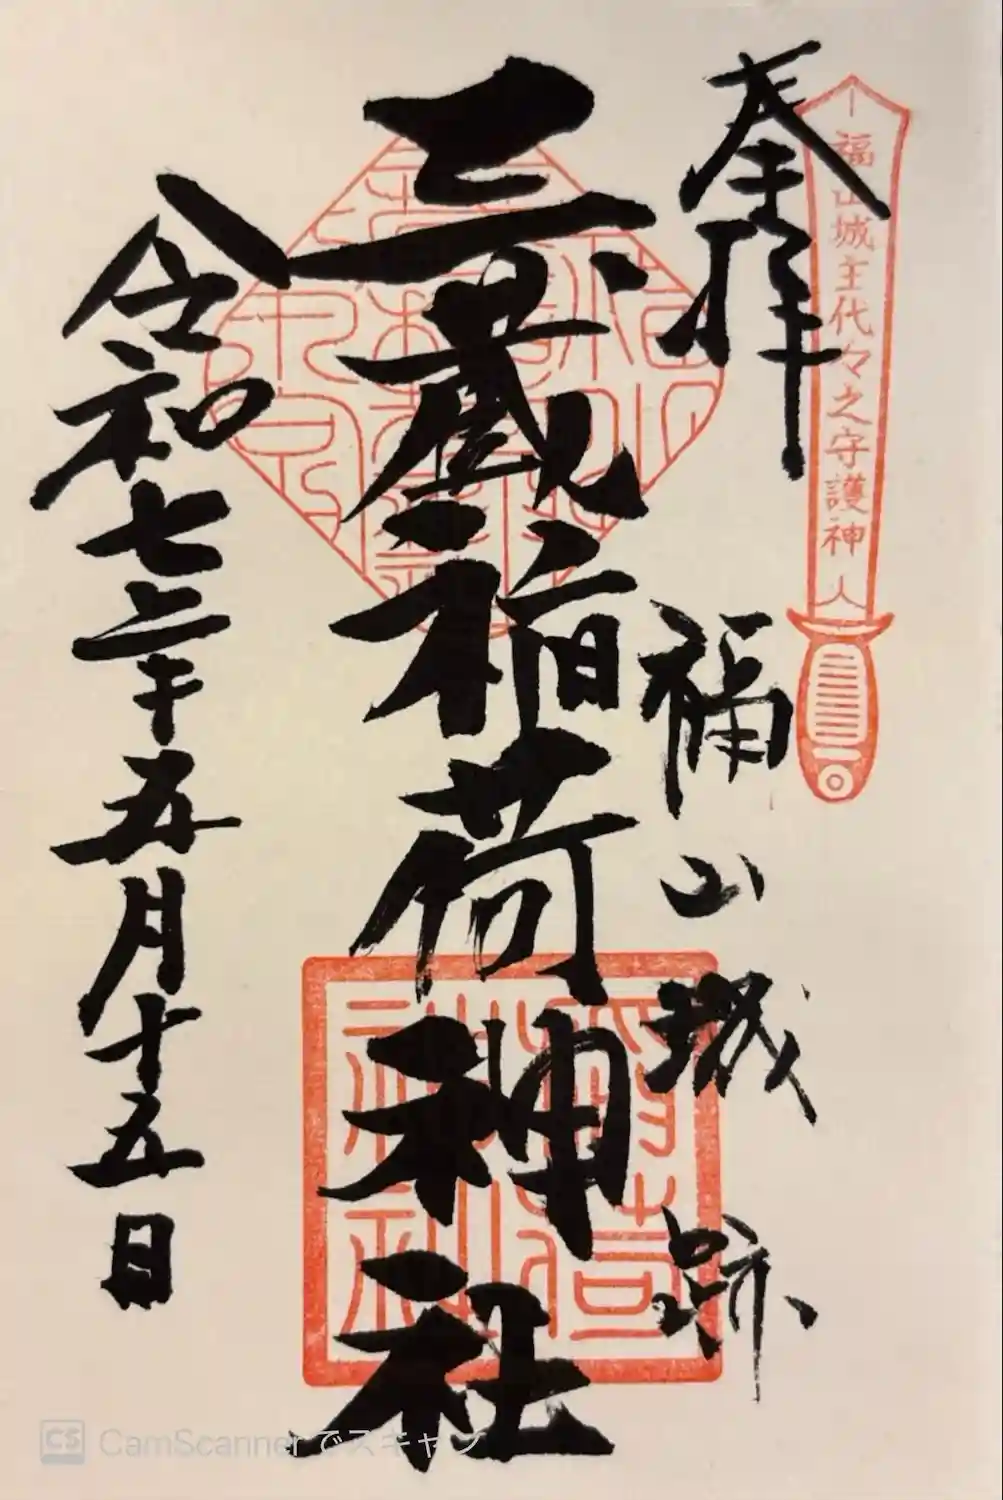 福山城主代々之守護神
奉拝
福山城跡
三蔵稲荷神社
令和七年五月十五日
稲荷神社
CS CamScannerでスキャン